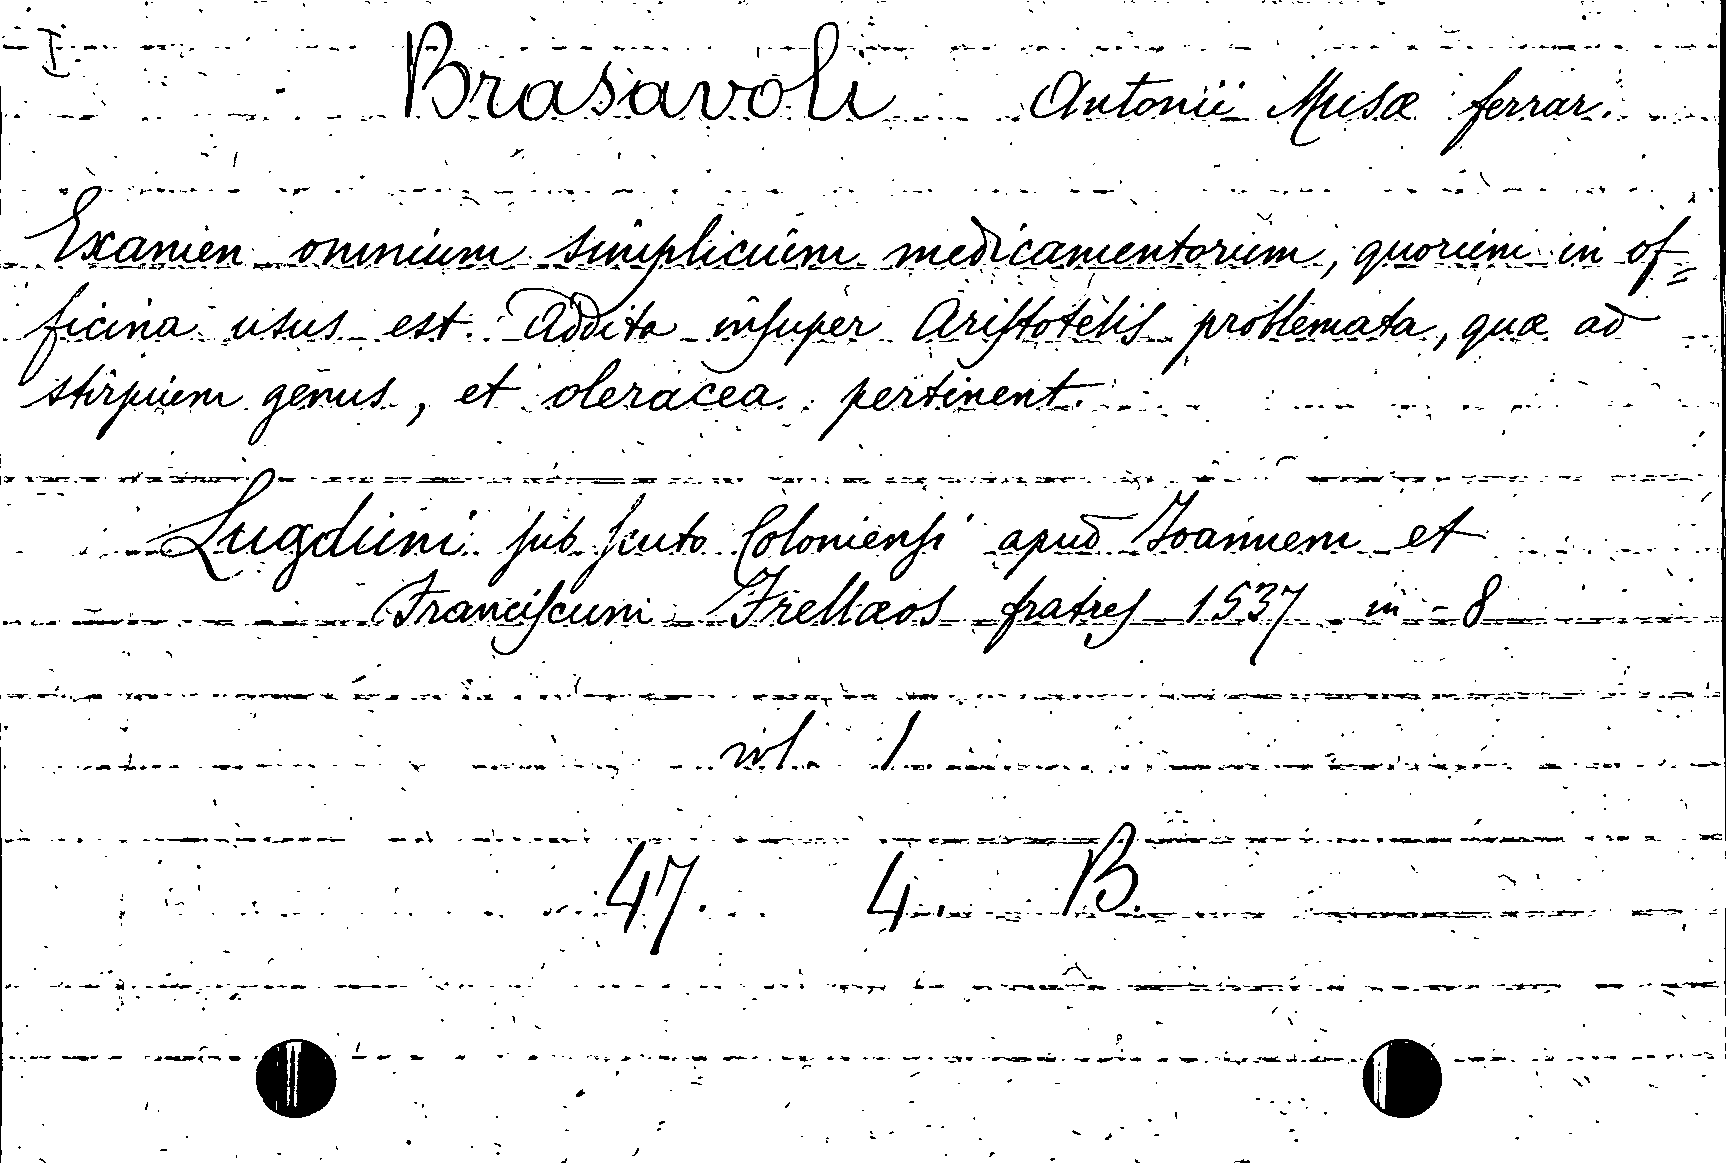 I
Brasavoli Antonii Musæ ferrar.
Examen omnium simplicium medicamentorum, quorum in of=
ficina usus est. Addita insuper Aristotelis problemata, quæ ad
stirpium genus, et oleracea pertinent.
Lugduni sub scuto Coloniensi apud Joannem et
Franciscum Frellæos fratres 1537 in-8
vol. 1
47. 4. B.